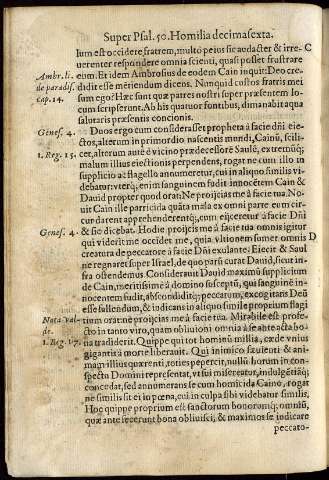 Super Psal. 50. Homilia decimasexta.
lum est occidere fratrem, multò peius sic audacter & irre-
uerenter respondere omnia scienti, quasi posset frustrare
Ambr. li.
de paradis.
cap. 14.
eum. Et idem Ambrosius de eodem Cain inquit: Deo cre-
didit esse mentiendum dicens. Nunquid custos fratris mei
sum ego? Hæc sunt quæ patres nostri super præsentem lo-
cum scripserunt. Ab his quatuor fontibus, dimanabit aqua
salutaris præsentis concionis.
Genes. 4.
Duos ergo cum considerasset propheta à facie dñi eie-
ctos, alterum in primordio nascentis mundi, Cainũ, scili-
1. Reg. 15.
cet, alterum autẽ è vicino prædecessorẽ Saulẽ, extremũq;
malum illius eiectionis perpendens, rogat ne cum illo in
supplicio ac flagello annumeretur, cui in aliquo similis vi-
debatur: vterq; enim sanguinem fudit innocẽtem Cain &
Dauid propter quod orat: Ne proijcias me à facie tua. No-
uit Cain ille parricida quãta mala ex omni parte eum cir-
cundarent apprehenderentq;, cum eijceretur à facie Dñi
Genes. 4.
& sic dicebat. Hodie proijcis me à facie tua omnis igitur
qui viderit me occidet me, quia vltionem sumet omnis
D
creatura de peccatore à facie Dñi exulante. Eiecit & Saul
ne regnaret super Israel, de quo parũ curat Dauid, sicut in-
fra ostendemus. Considerauit Dauid maximũ supplicium
de Cain, meritissimè à domino susceptũ, qui sanguinẽ in-
nocentem fudit, abscondidítq; peccatum, excogitans Deũ
esse fallendum, & indicans in aliquo simile proprium flagi
Nota val-
de.
tium orat: ne proijcias me à facie tua. Mirabile est profe-
cto in tanto viro, quam obliuioni omnia à se anteacta bo-
1. Reg. 17.
na tradiderit. Quippe qui tot hominũ millia, cæde vnius
gigantis à morte liberauit. Qui inimico sæuienti & ani-
mam illius quærenti, toties pepercit, nullũ horum in con-
spectu Domini repræsentat, vt sui misereatur, indulgẽtiáq;
concedat, sed annumerans se cum homicida Caino, rogat
ne similis sit ei in pœna, cui in culpa sibi videbatur similis,
Hoc quippe proprium est sanctorum bonorumq; omniũ,
quæ ante fecerunt bona obliuisci, & maximos se iudicare
peccato-